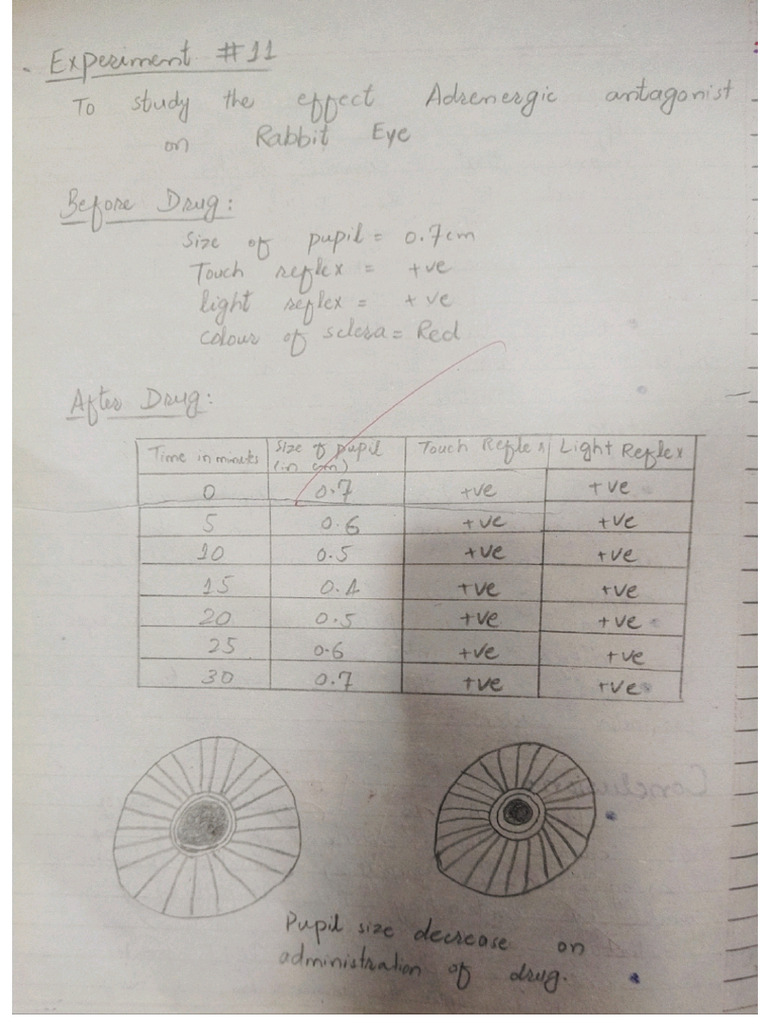 Experiment #11
To study the effect Adrenergic antagonist
on Rabbit Eye
Before Drug:
Size of pupil = 0.7cm
Touch reflex = +ve
light reflex = +ve
colour of sclera = Red
After Drug:
Time in minutes Size of pupil (in cm) Touch Reflex Light Reflex
0 0.7 +ve +ve
5 0.6 +ve +ve
10 0.5 +ve +ve
15 0.4 +ve +ve
20 0.5 +ve +ve
25 0.6 +ve +ve
30 0.7 +ve +ve
Pupil size decrease on
administration of drug.